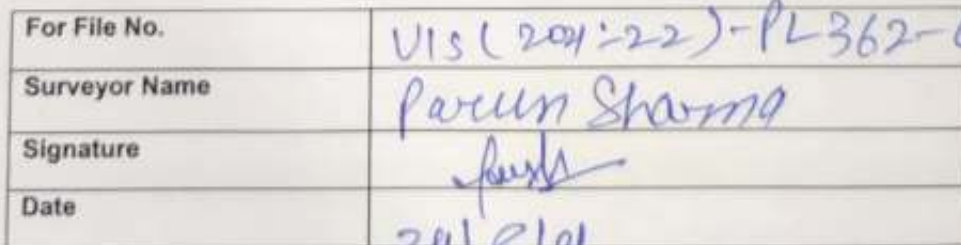 For File No. VIS(2021-22)-PL362-
Surveyor Name Parun Sharma
Signature
Date